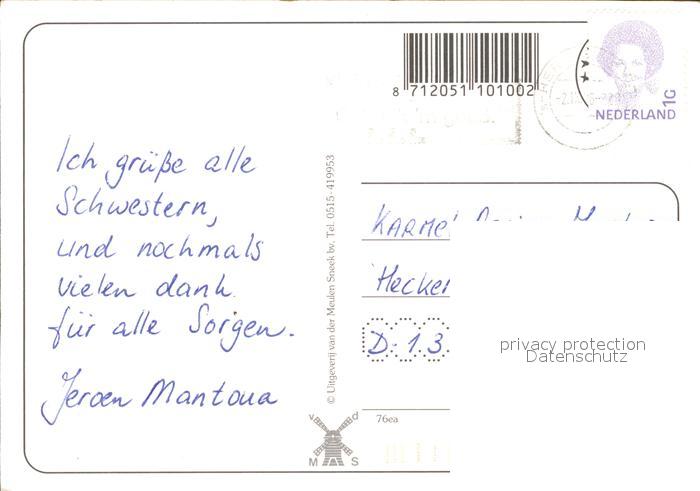 Ich grüße alle
Schwestern,
und nochmals
vielen dank
für alle Sorgen.
Jeroen Mantoua
© Uitgeverij van der Meulen Sneek bv, Tel. 0515-419953
8 712051 101002
NEDERLAND
1G
KARME
Hecke
D-13
privacy protection
Datenschutz
76ea
v d
M S